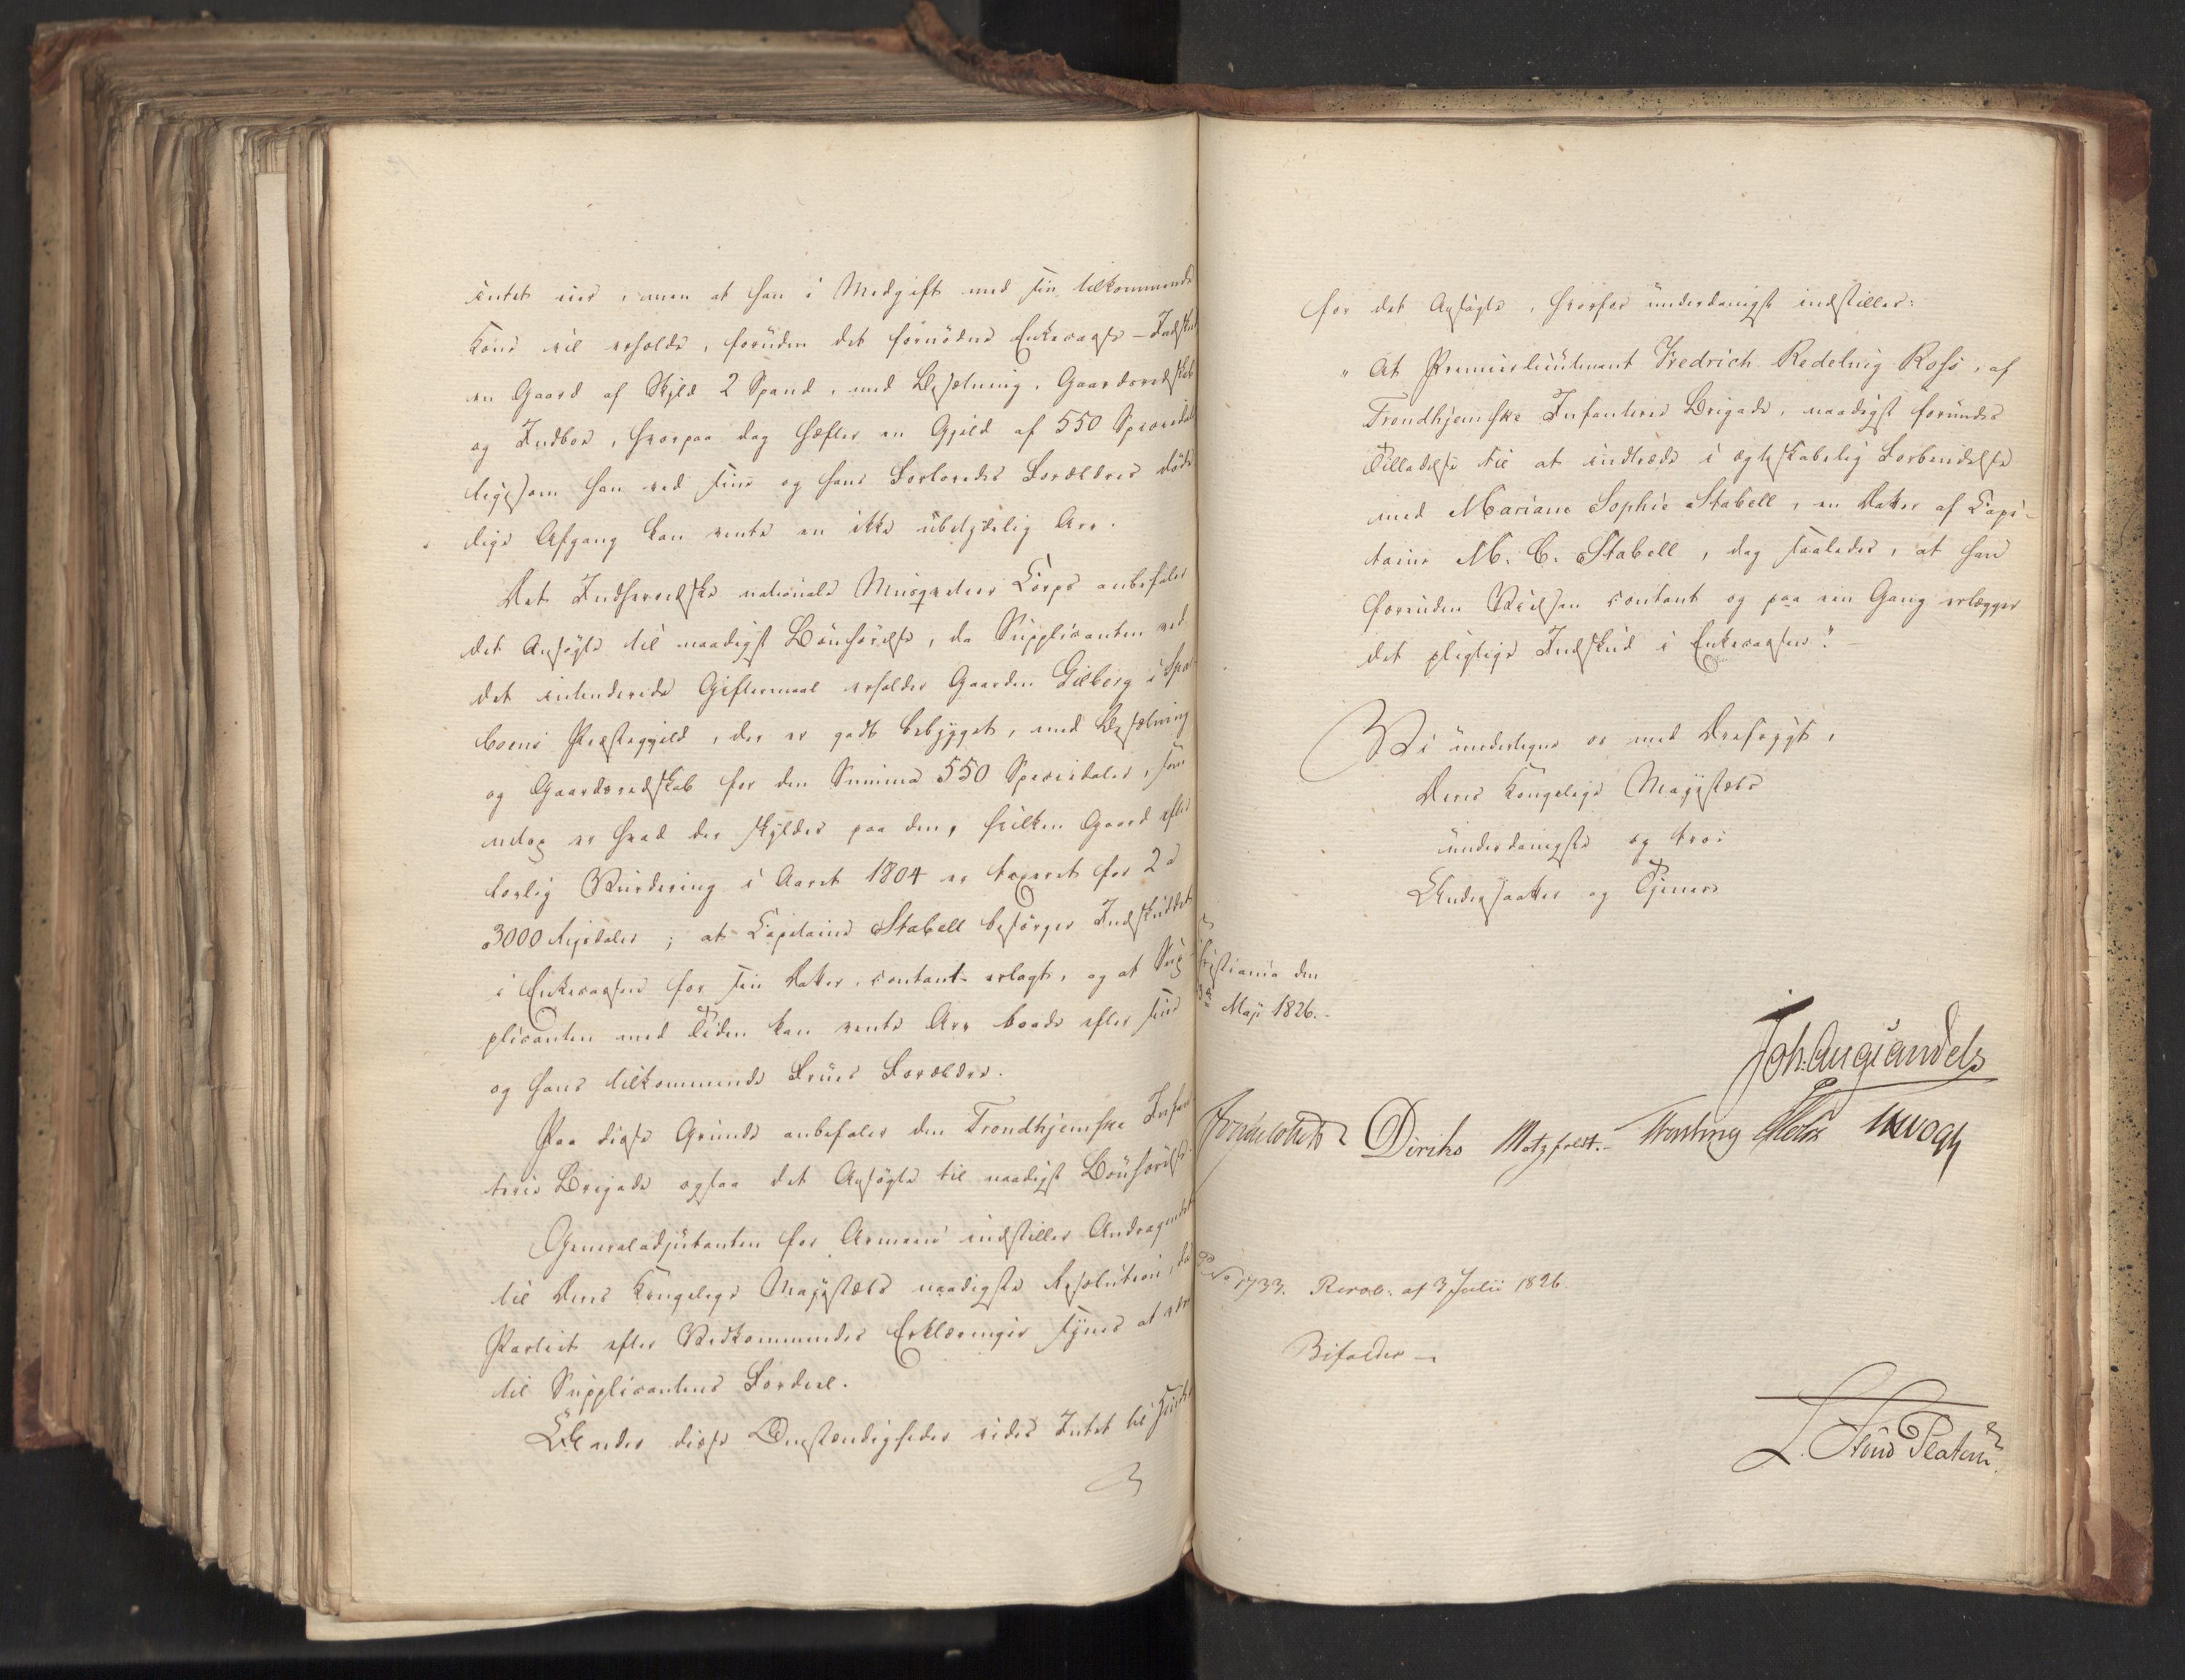 intet eier, men at han i Medgift med sin tilkommende
Kone vil erholde, foruden det fornødne Enkecasse-Indskud
en Gaard af Skyld 2 Spand, med Besætning, Gaardsredskab
og Indboe, hvorpaa dog hæfter en Gjeld af 550 Speciedaler
ligesom han ved sine og hans Forlovedes Forældres døde-
lige Afgang kan vente en ikke ubetydelig Arv.
Det Indherredske nationale Musqueteer Corps anbefaler
det Ansøgte til naadigst Bønhørelse, da Supplicanten ved
det intenderede Giftermaal erholder Gaarden Gilberg i Spar-
boens Præstegjeld, der er godt bebygget, med Besætning
og Gaardsredskab for den Summa 550 Speciedaler, som
netop er hvad der skyldes paa den, hvilken Gaard efter
lovlig Vurdering i Aaret 1804 er taxeret for 2 a
3000 Rigsdaler; at Capitaine Stabell besørger Indskuddet
i Enkecassen for sin Datter, contant erlagt, og at Sup-
plicanten med Tiden kan vente Arv baade efter sine
og hans tilkommende Frues Forældre.
Paa disse Grunde anbefaler den Trondhjemske Infan-
terie Brigade ogsaa det Ansøgte til naadigst Bønhørelse.
Generaladjutanten for Armeen indstiller Andragendet
til Deres Kongelige Majestæts naadigste Resolution, da
Partiet efter Vedkommendes Erklæringer synes at være
til Supplicantens Fordeel.
Under disse Omstændigheder vides Intet til Hinder
for det Ansøgte, hvorfor underdanigst indstilles:
"At Premierlieutenant Fredrich Redelvig Ross, af
Trondhjemske Infanterie Brigade, naadigst forundes
Tilladelse til at indtræde i ægteskabelig Forbindelse
med Mariane Sophie Stabell, en Datter af Capi-
taine M. C. Stabell, dog saaledes, at han
forinden Vielsen contant og paa een Gang erlægger
det pligtige Indskud i Enkecassen".
Vi undertegne os med Ærefrygt,
Deres Kongelige Majestæts
underdanigste og troe
Undersaatter og Tjenere
Christiania den
Maji 1826.
Joh: Aug: Sandels
Diriks Motzfeldt. Treschow Holst
No 1733. Resol: af 3 Julii 1826.
Bifaldes